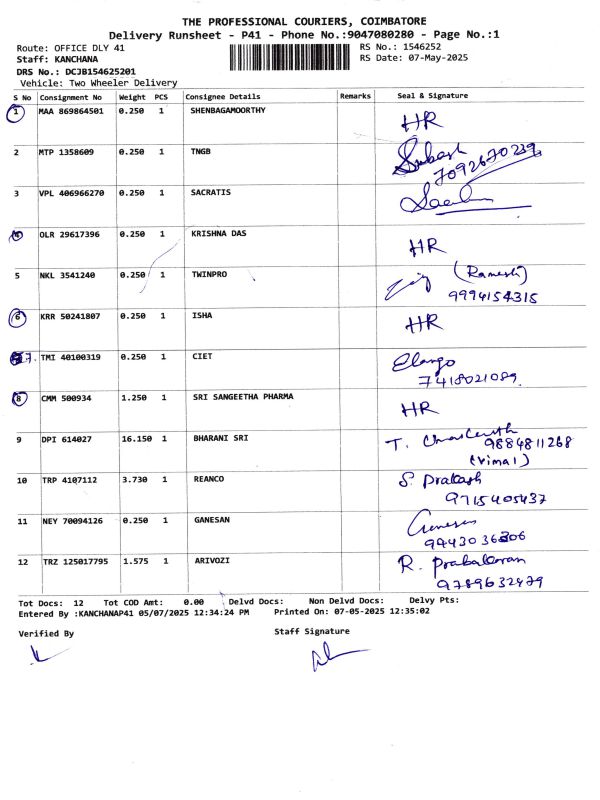 THE PROFESSIONAL COURIERS, COIMBATORE
Delivery Runsheet - P41 - Phone No.:9047080280 - Page No.:1
Route: OFFICE DLY 41 RS No.: 1546252
Staff: KANCHANA RS Date: 07-May-2025
DRS No.: DCJB154625201
Vehicle: Two Wheeler Delivery
S No Consignment No Weight PCS Consignee Details Remarks Seal & Signature
1 MAA 869864501 0.250 1 SHENBAGAMOORTHY HR
2 MTP 1358609 0.250 1 TNGB Subash
7092670239
3 VPL 406966270 0.250 1 SACRATIS
OLR 29617396 0.250 1 KRISHNA DAS HR
5 NKL 3541240 0.250 1 TWINPRO (Ramesh)
9994154315
6 KRR 50241807 0.250 1 ISHA HR
7. TMI 40100319 0.250 1 CIET Elango
7418021089
8 CMM 500934 1.250 1 SRI SANGEETHA PHARMA HR
9 DPI 614027 16.150 1 BHARANI SRI T.
9884811268
(Vimal)
10 TRP 4107112 3.730 1 REANCO S. Prakash
9715405437
11 NEY 70094126 0.250 1 GANESAN Ganesan
9443036306
12 TRZ 125017795 1.575 1 ARIVOZI R. Prabakaran
9789632479
Tot Docs: 12 Tot COD Amt: 0.00 Delvd Docs: Non Delvd Docs: Delvy Pts:
Entered By :KANCHANAP41 05/07/2025 12:34:24 PM Printed On: 07-05-2025 12:35:02
Verified By Staff Signature